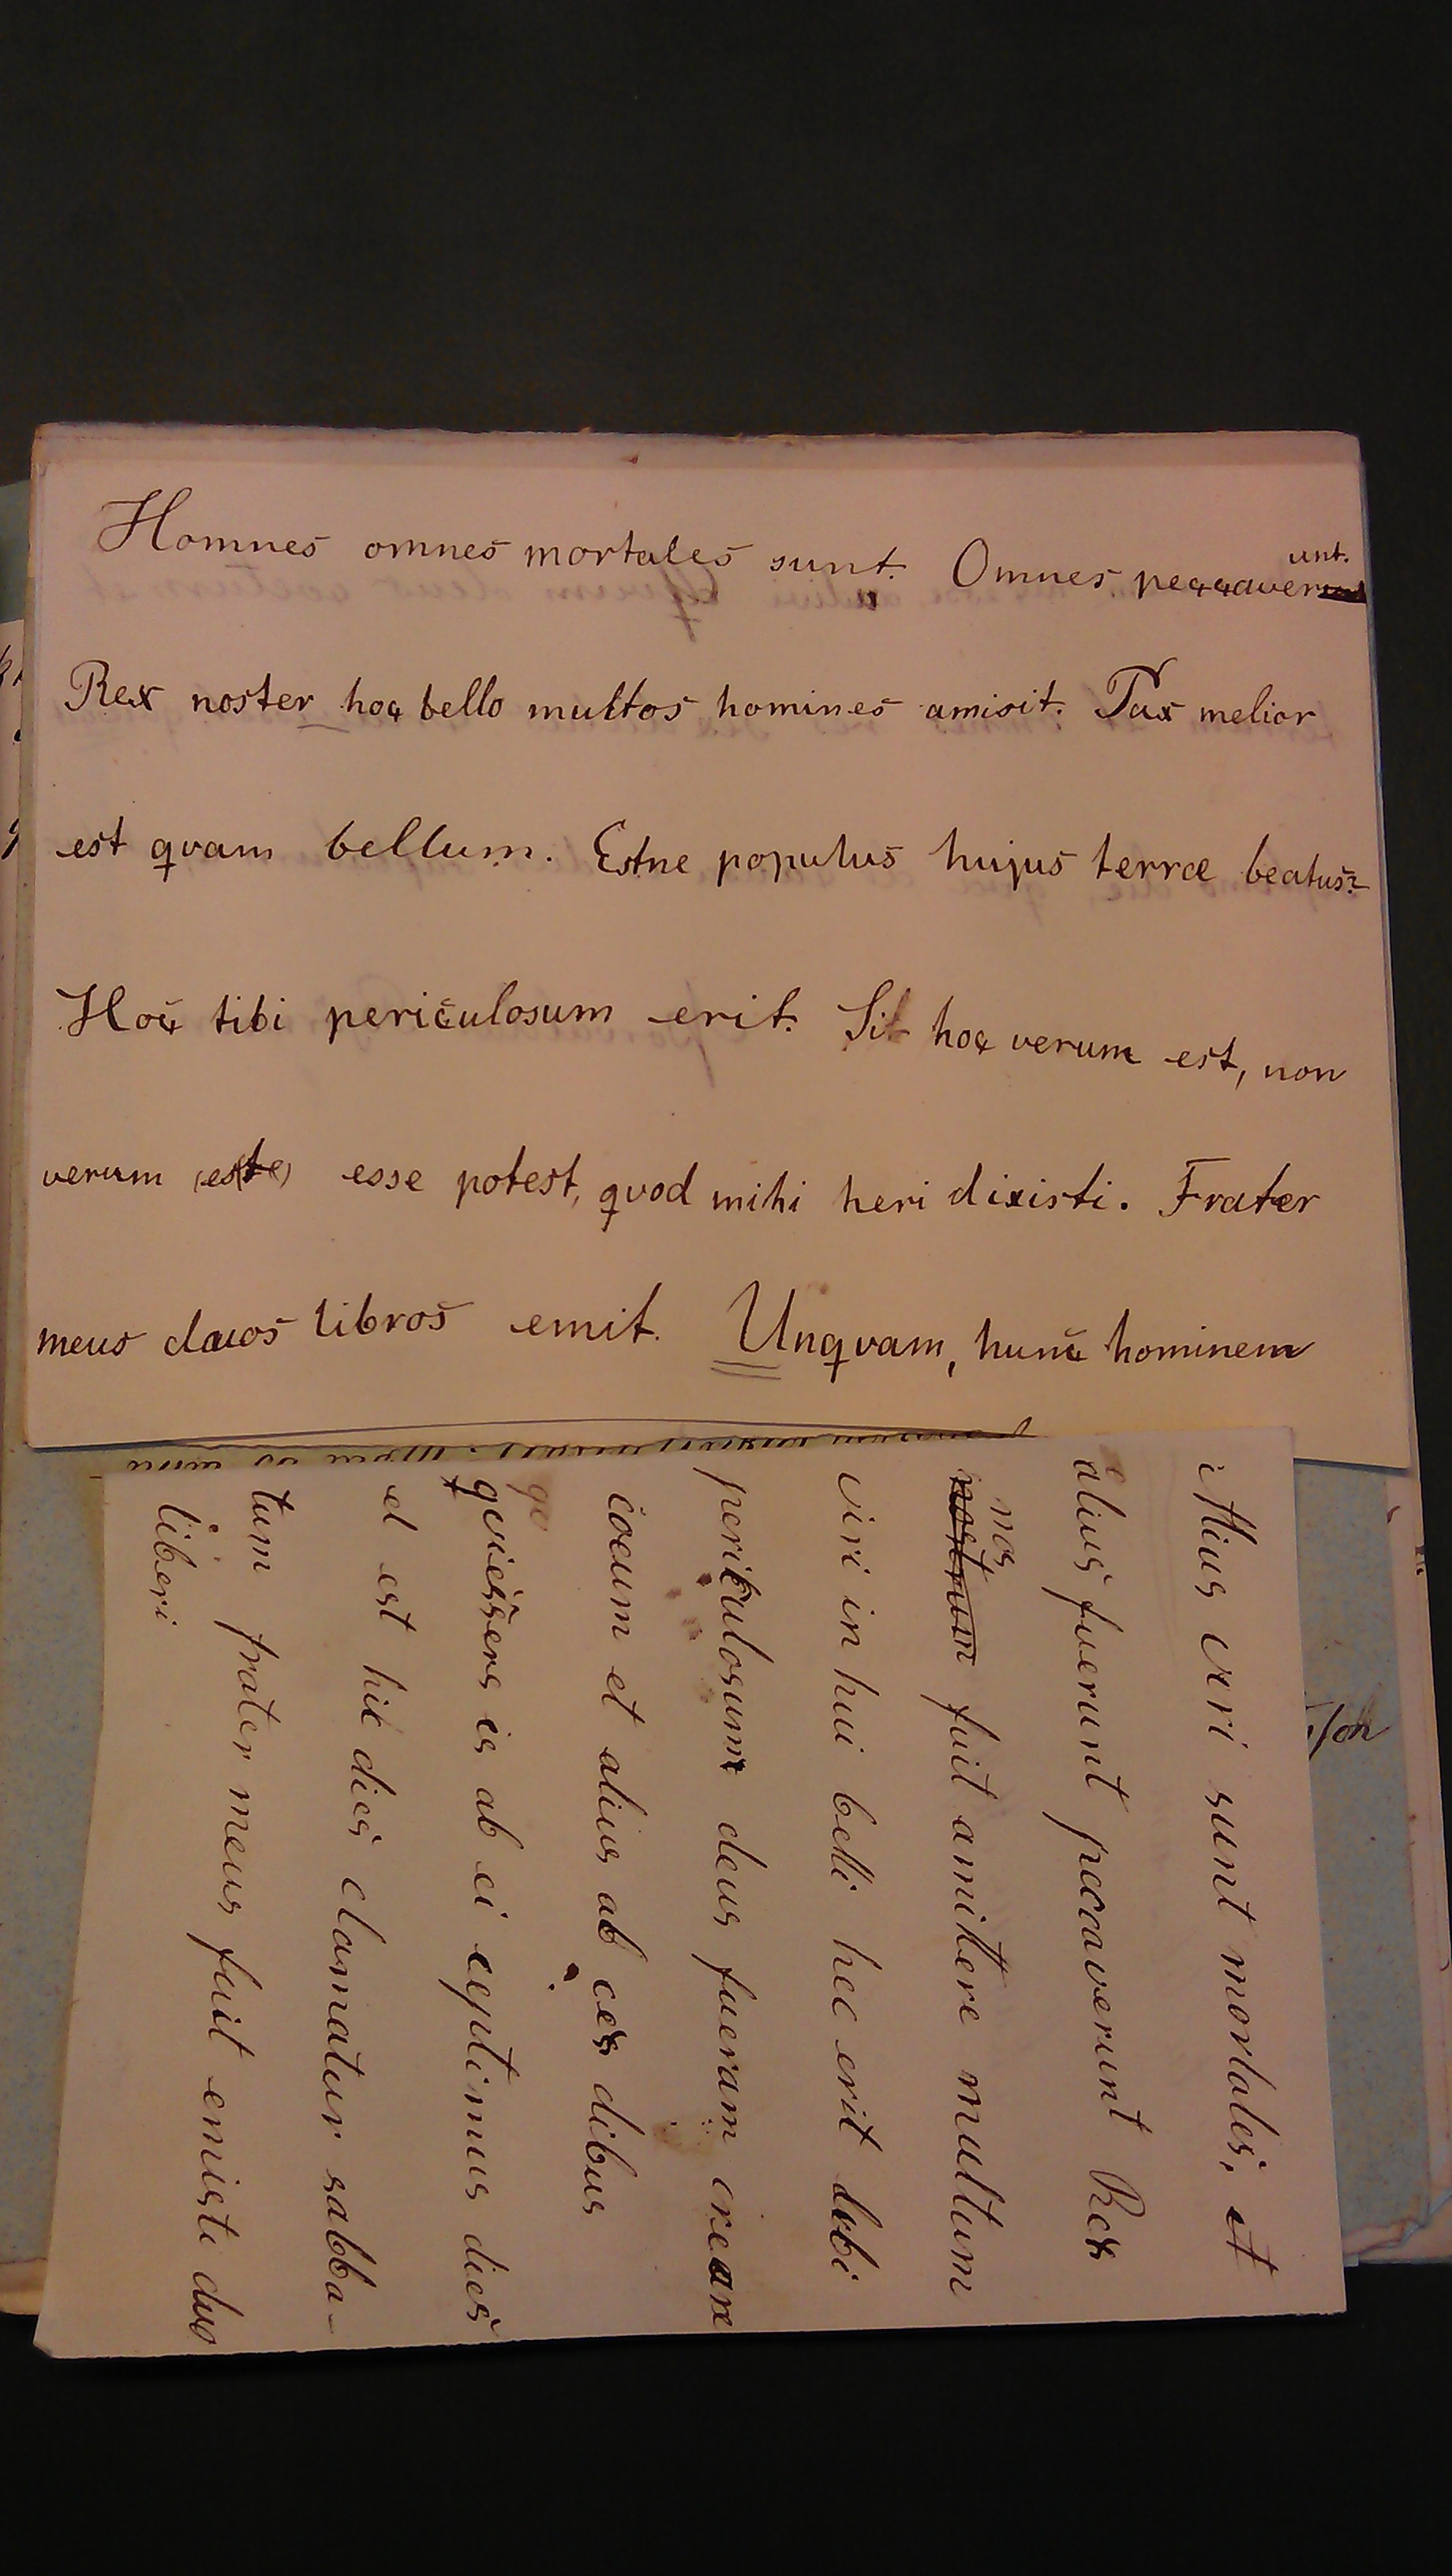 Homnes omnes mortales sunt. Omnes peccaverunt.
Rex noster hoc bello multos homines amisit. Pax melior
est qvam bellum. Estne populus hujus terræ beatus?
Hoc tibi periculosum erit. Sit hoc verum est, non
verum (este) esse potest, qvod mihi heri dixisti. Frater
meus duos libros emit. Unqvam, hunc hominem
Alius veri sunt mortales, et
alius fuerunt peccaverunt Rex
nos
nostrum fuit amittere multum
viri in hui belli hec erit
perikulosum deus fueram creare
coeum et alius ab ces dibus
qe
qviescere is ab ei ceptimus dies
el est hic dies clamatur sabba-
tum frater meus fuit emisti duo
liberi